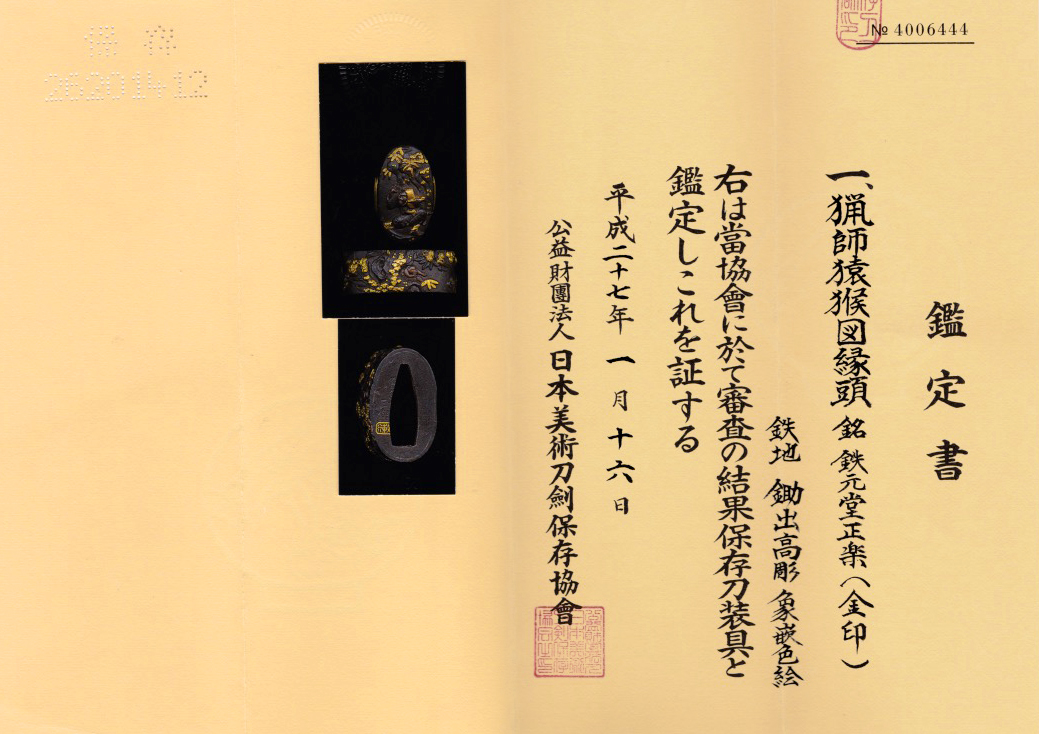 № 4006444
鑑定書
一、猟師猿猴図縁頭 銘 鉄元堂正楽(金印)
鉄地 鋤出高彫 象嵌色絵
右は當協會に於て審査の結果保存刀装具と
鑑定しこれを証する
平成二十七年 一月十六日
公益財團法人 日本美術刀劍保存協會
保存
26201412